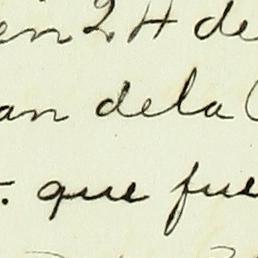 en 24 de
an dela
que fue